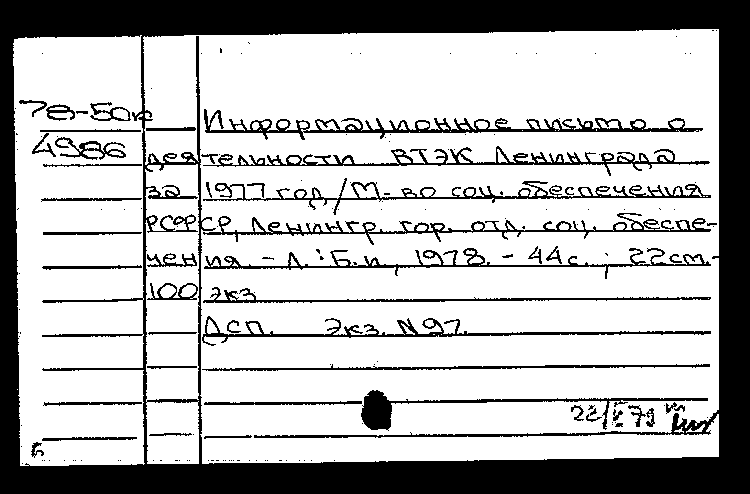 78-50к
Информационное письмо о
4986
деятельности ВТЭК Ленинграда
за 1977 год/М-во соц. обеспечения
РСФСР, Ленингр. гор. отд. соц. обеспе-
чения. - Л.: Б.и, 1978. - 44с.; 22см.-
100 экз
ДСП. Экз. N97.
22/V 79
Б